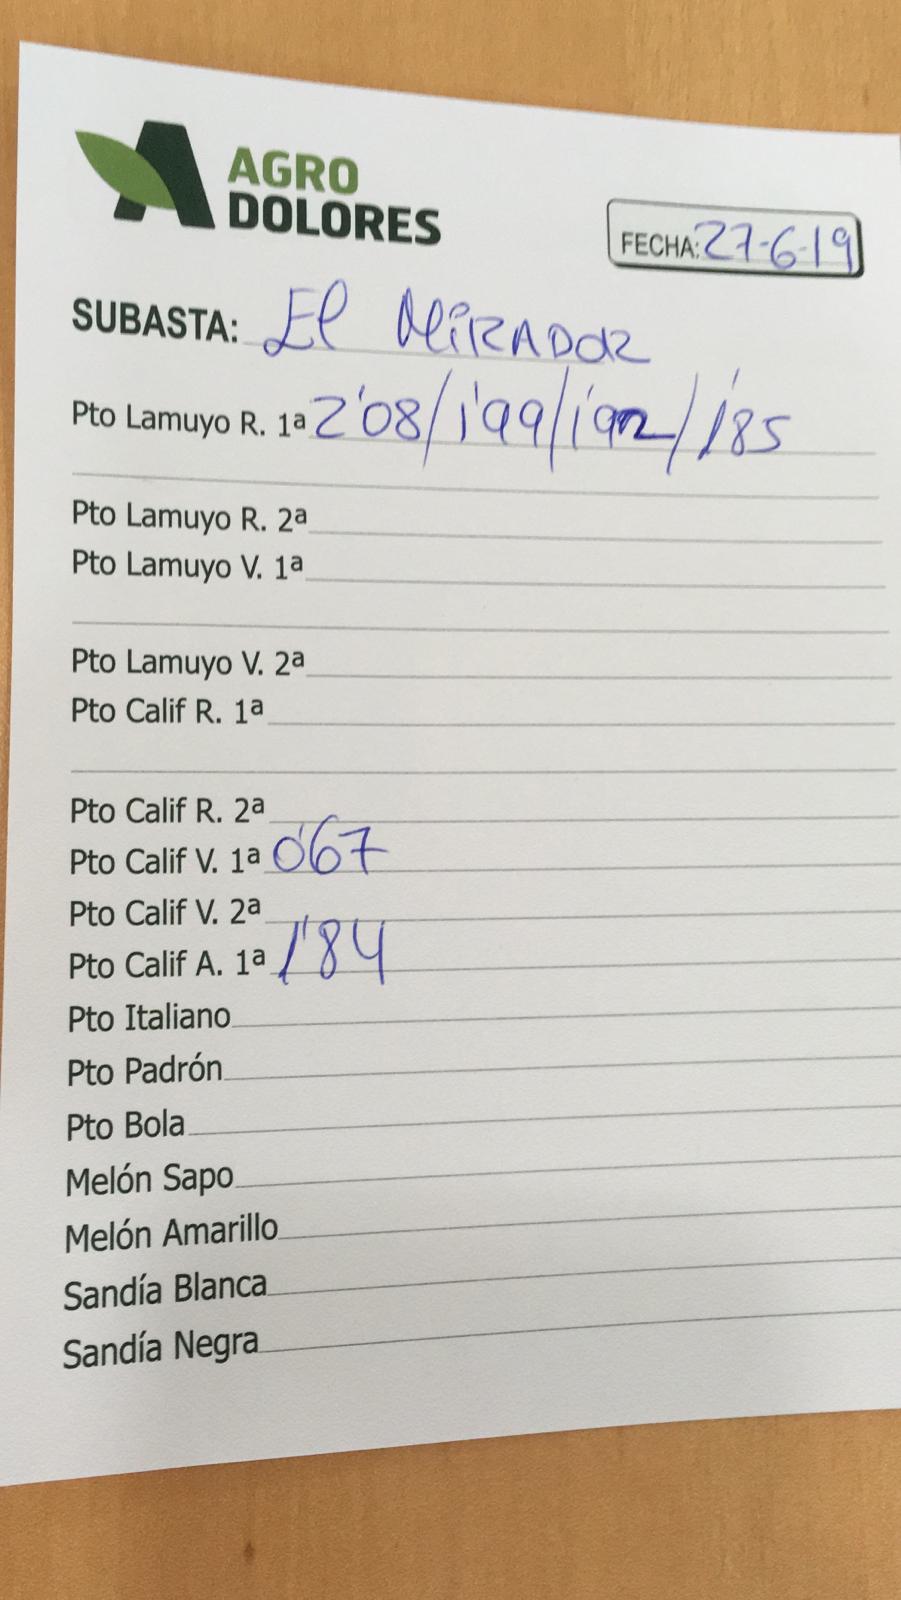 AGRO
DOLORES
FECHA: 27-6-19
SUBASTA: El MiRADOR
Pto Lamuyo R. 1ª 2'08/1'99/1'92/1'85
Pto Lamuyo R. 2ª
Pto Lamuyo V. 1ª
Pto Lamuyo V. 2ª
Pto Calif R. 1ª
Pto Calif R. 2ª
Pto Calif V. 1ª 0'67
Pto Calif V. 2ª
Pto Calif A. 1ª 1'84
Pto Italiano
Pto Padrón
Pto Bola
Melón Sapo
Melón Amarillo
Sandía Blanca
Sandía Negra